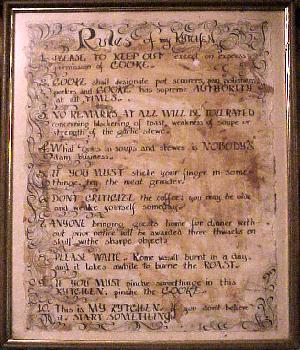 Rules of my Kitchen
1. PLEASE TO KEEP OUT except on express
permission of COOKE.
2. COOKE shall designate pot scourers, pan polishers
peelers and COOKE has supreme AUTHORITY
at all TIMES.
3. NO REMARKS AT ALL WILL BE TOLERATED
concerning blackening of toast, weakness of soupe or
strength of the garlic stewe.
4. What goes in soups and stewes is NOBODY'S
dam business.
5. IF YOU MUST sticke your finger in some-
thinge, try the meat grinder.
6. DON'T CRITICIZE the coffee; you may be olde
and weake yourself someday.
7. ANYONE bringing guests home for dinner with-
out prior notice will be awarded three thwacks on
skull withe sharpe object.
8. PLEASE WAITE. Rome wasn't burnt in a day,
and it takes awhile to burne the ROAST.
9. IF YOU MUST pinche somethinge in this
KITCHEN, pinche the COOKE.
10. This is MY KITCHEN. If you don't believe
it, START SOMETHING